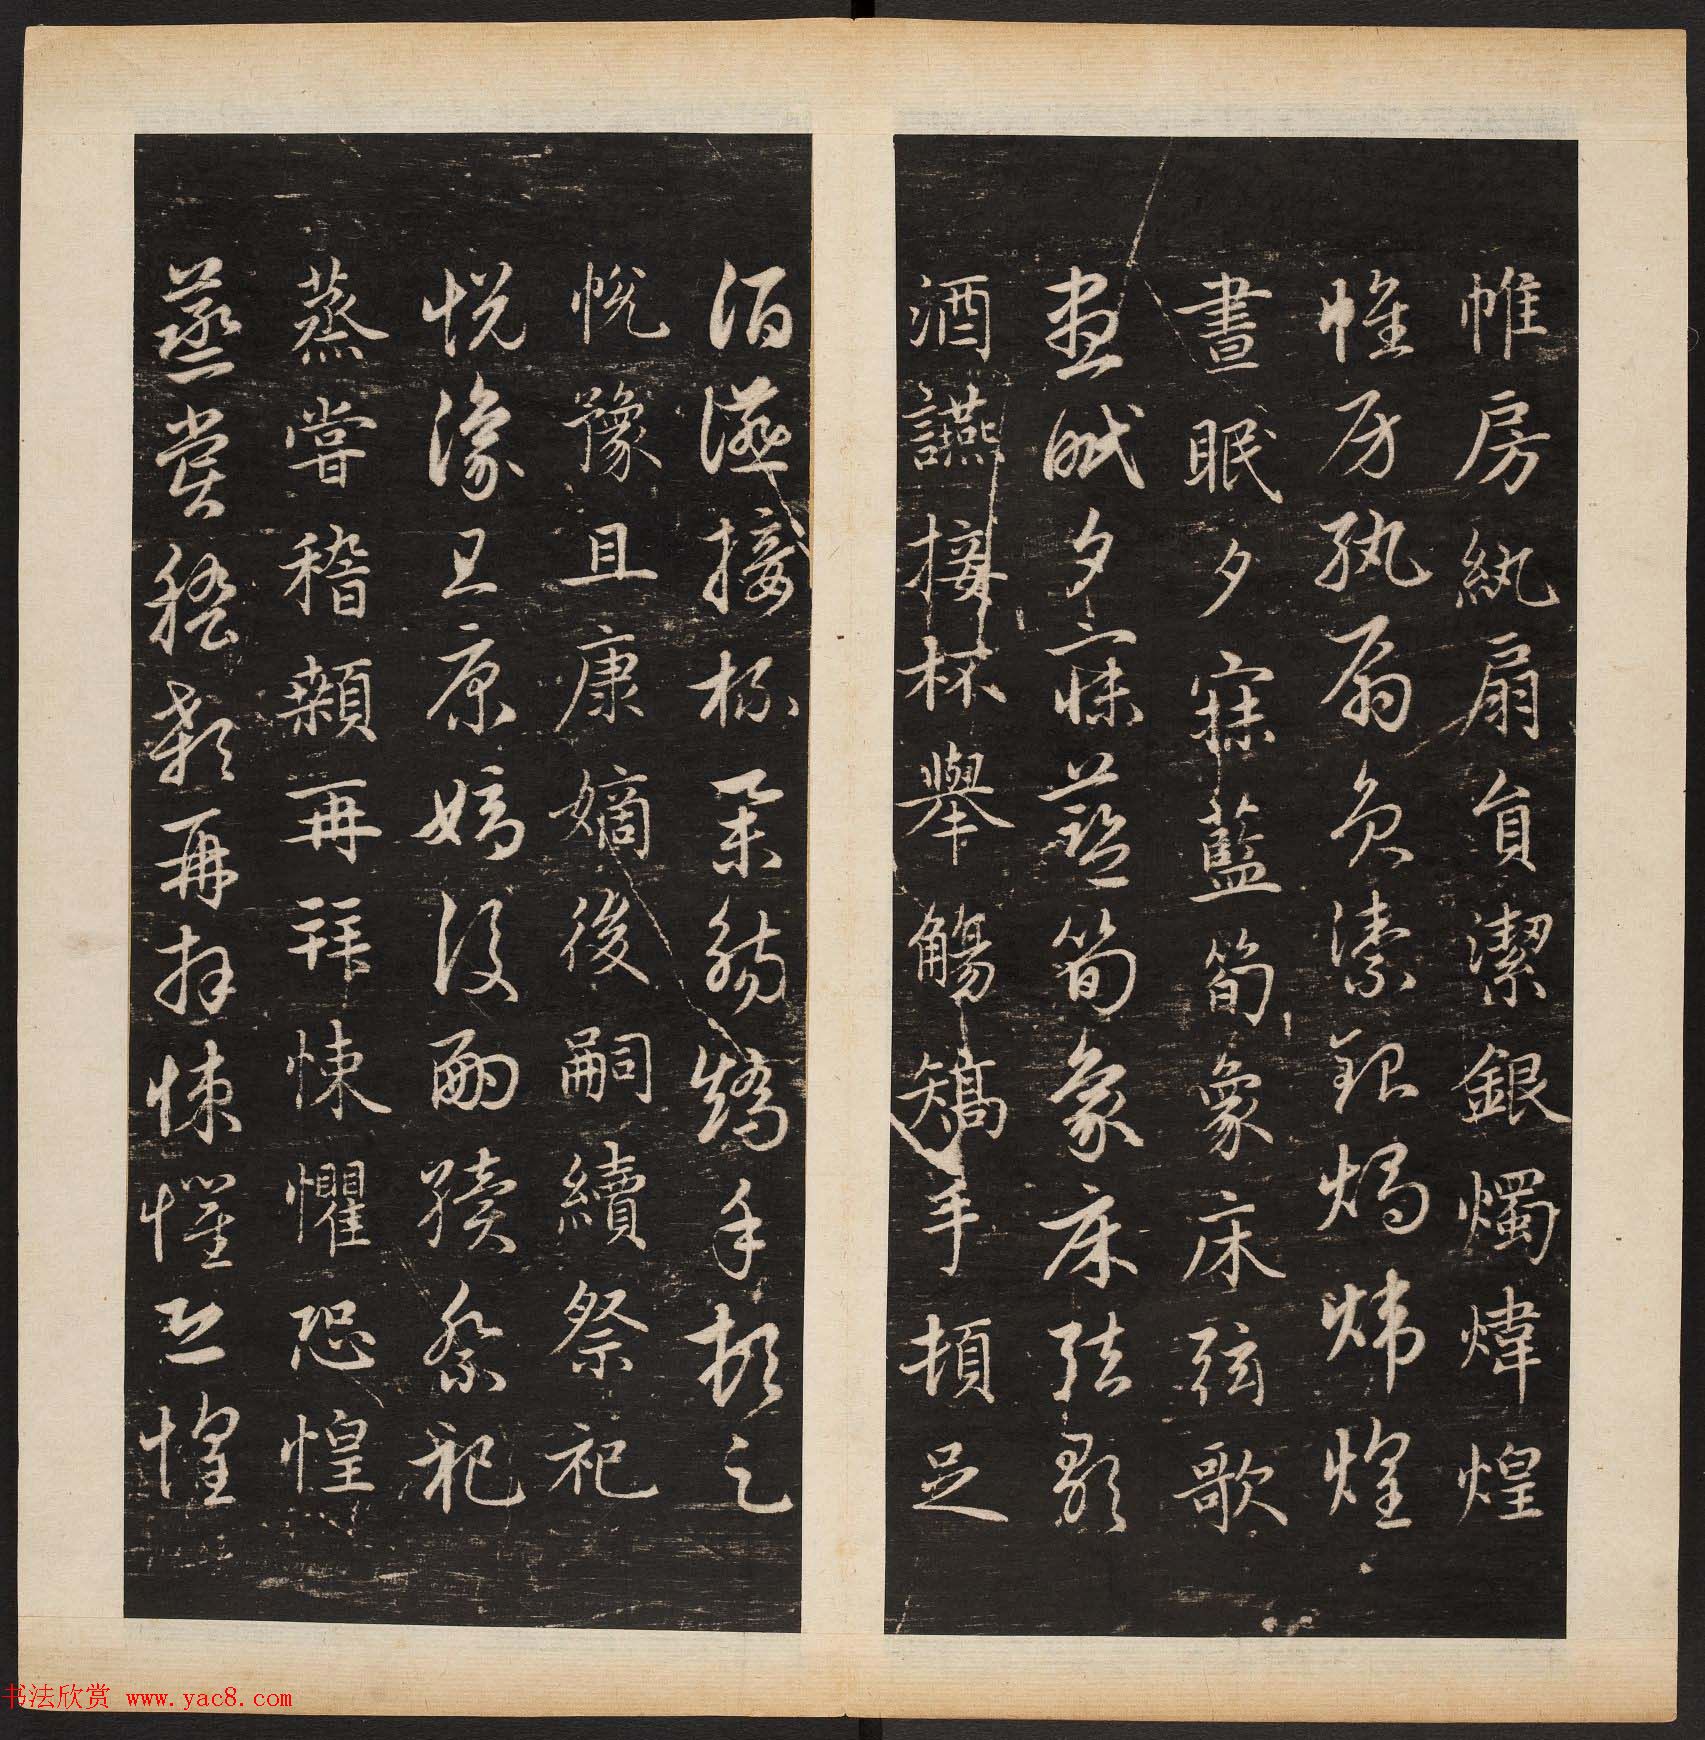 帷房紈扇員潔銀燭煒煌
帷房紈扇員潔銀燭煒煌
晝眠夕寐藍筍象床弦歌
晝眠夕寐藍筍象床弦歌
酒讌接杯舉觴矯手頓足
酒讌接杯舉觴矯手頓足
悅豫且康嫡後嗣續祭祀
悅豫且康嫡後嗣續祭祀
蒸嘗稽顙再拜悚懼恐惶
蒸嘗稽顙再拜悚懼恐惶
书法欣赏 www.yac8.com